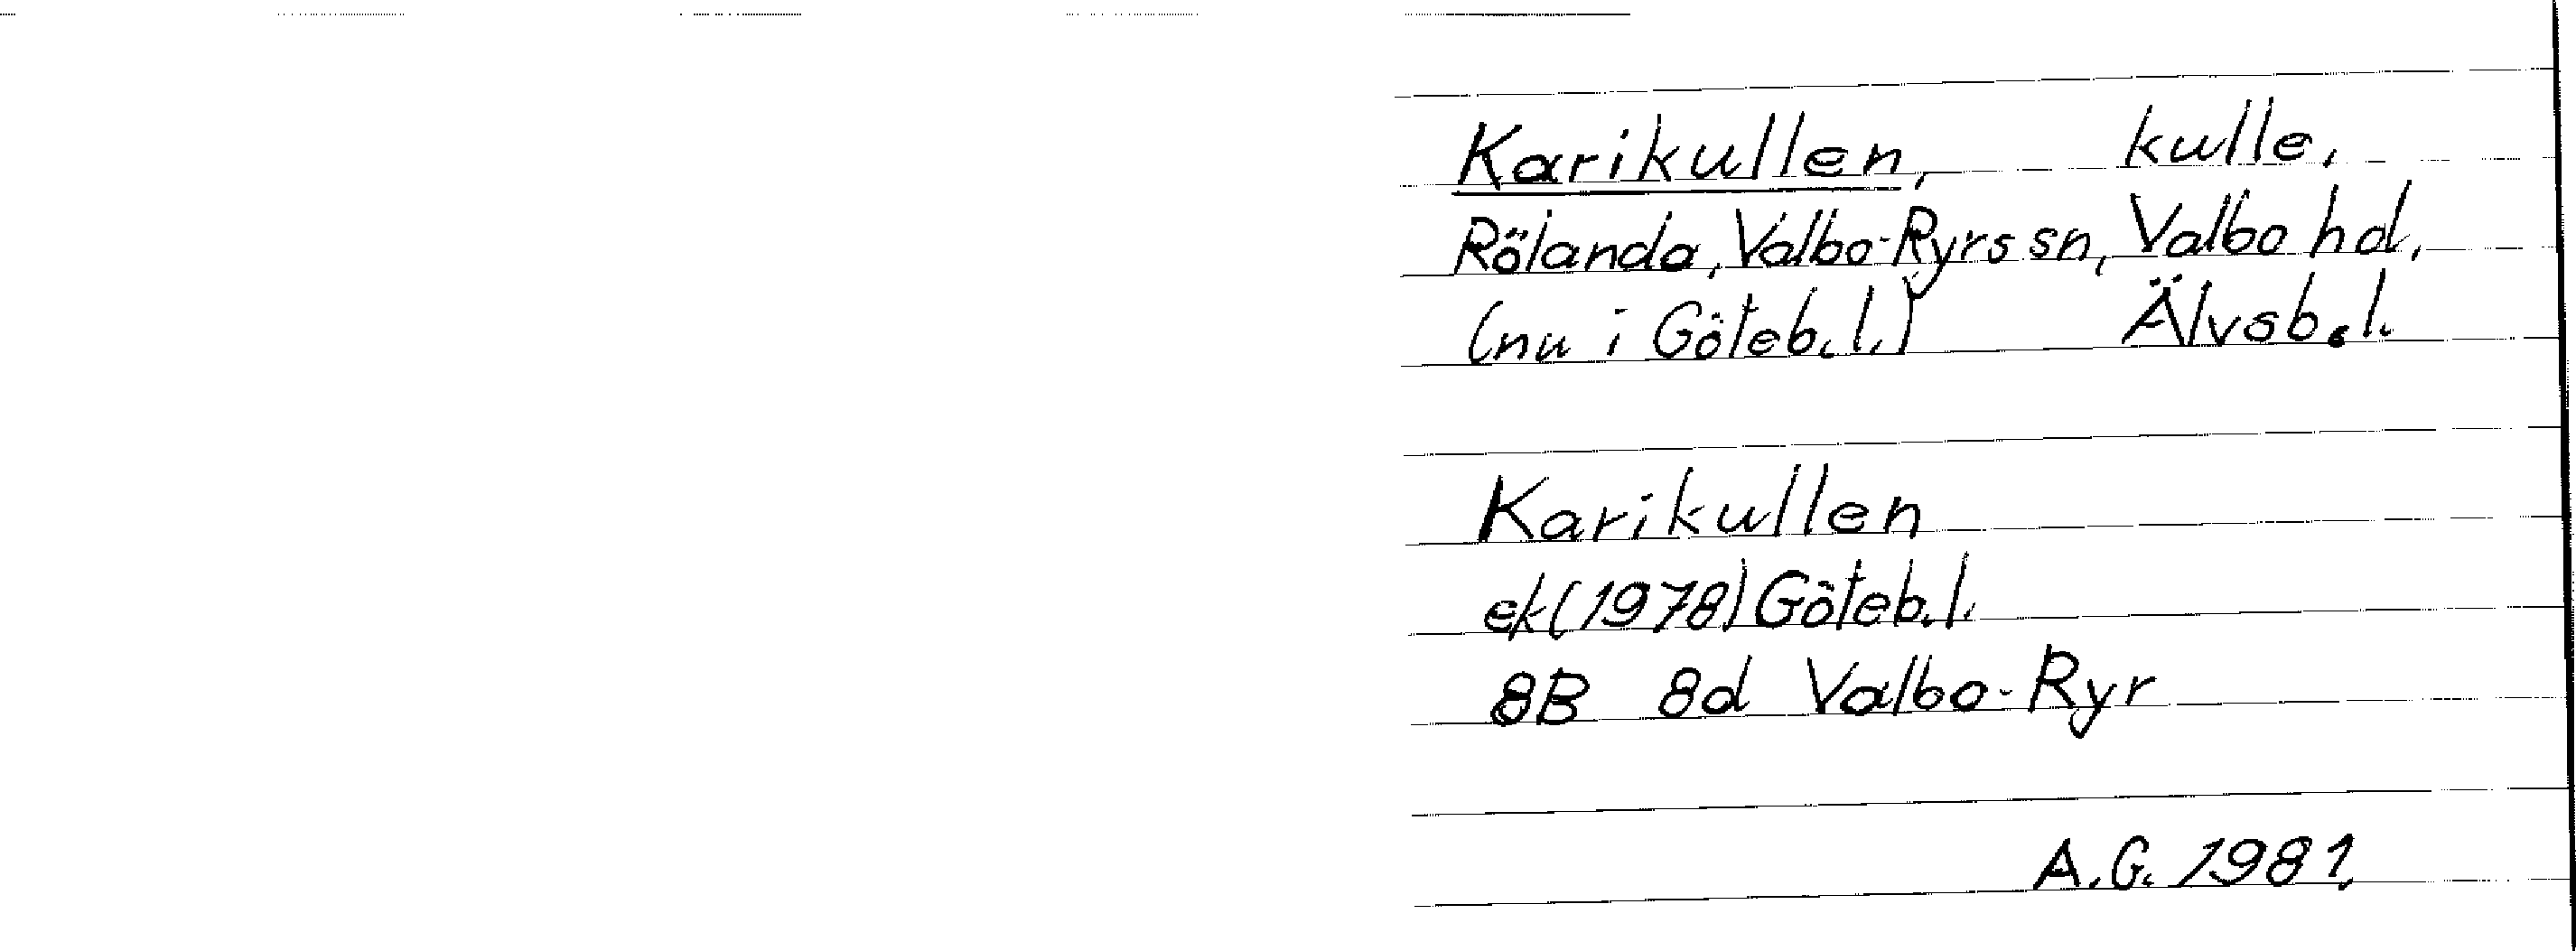 Karikullen, kulle,
Rölanda, Valbo-Ryrs sn, Valbo hd,
(nu i Göteb. l.) Älvsb. l.
Karikullen
ek (1978) Göteb. l.
8B 8d Valbo-Ryr
A.G. 1981.